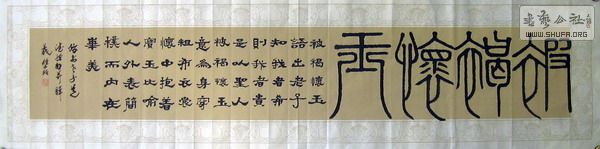 书艺公社
WWW.SHUFA.ORG
被褐懷玉
被褐懷玉
語出老子
知我者希
則我者貴
是以聖人
被褐懷玉
意為身穿
粗布衣裳
懷中抱着
寶玉比喻
人外表簡
樸而内在
華美